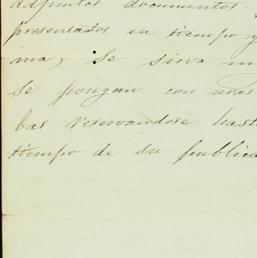 adjuntos documentos
presentados en tiempo y
ma, Se sirva m
Se pongan con
bas reservandose hast
tiempo de su publica